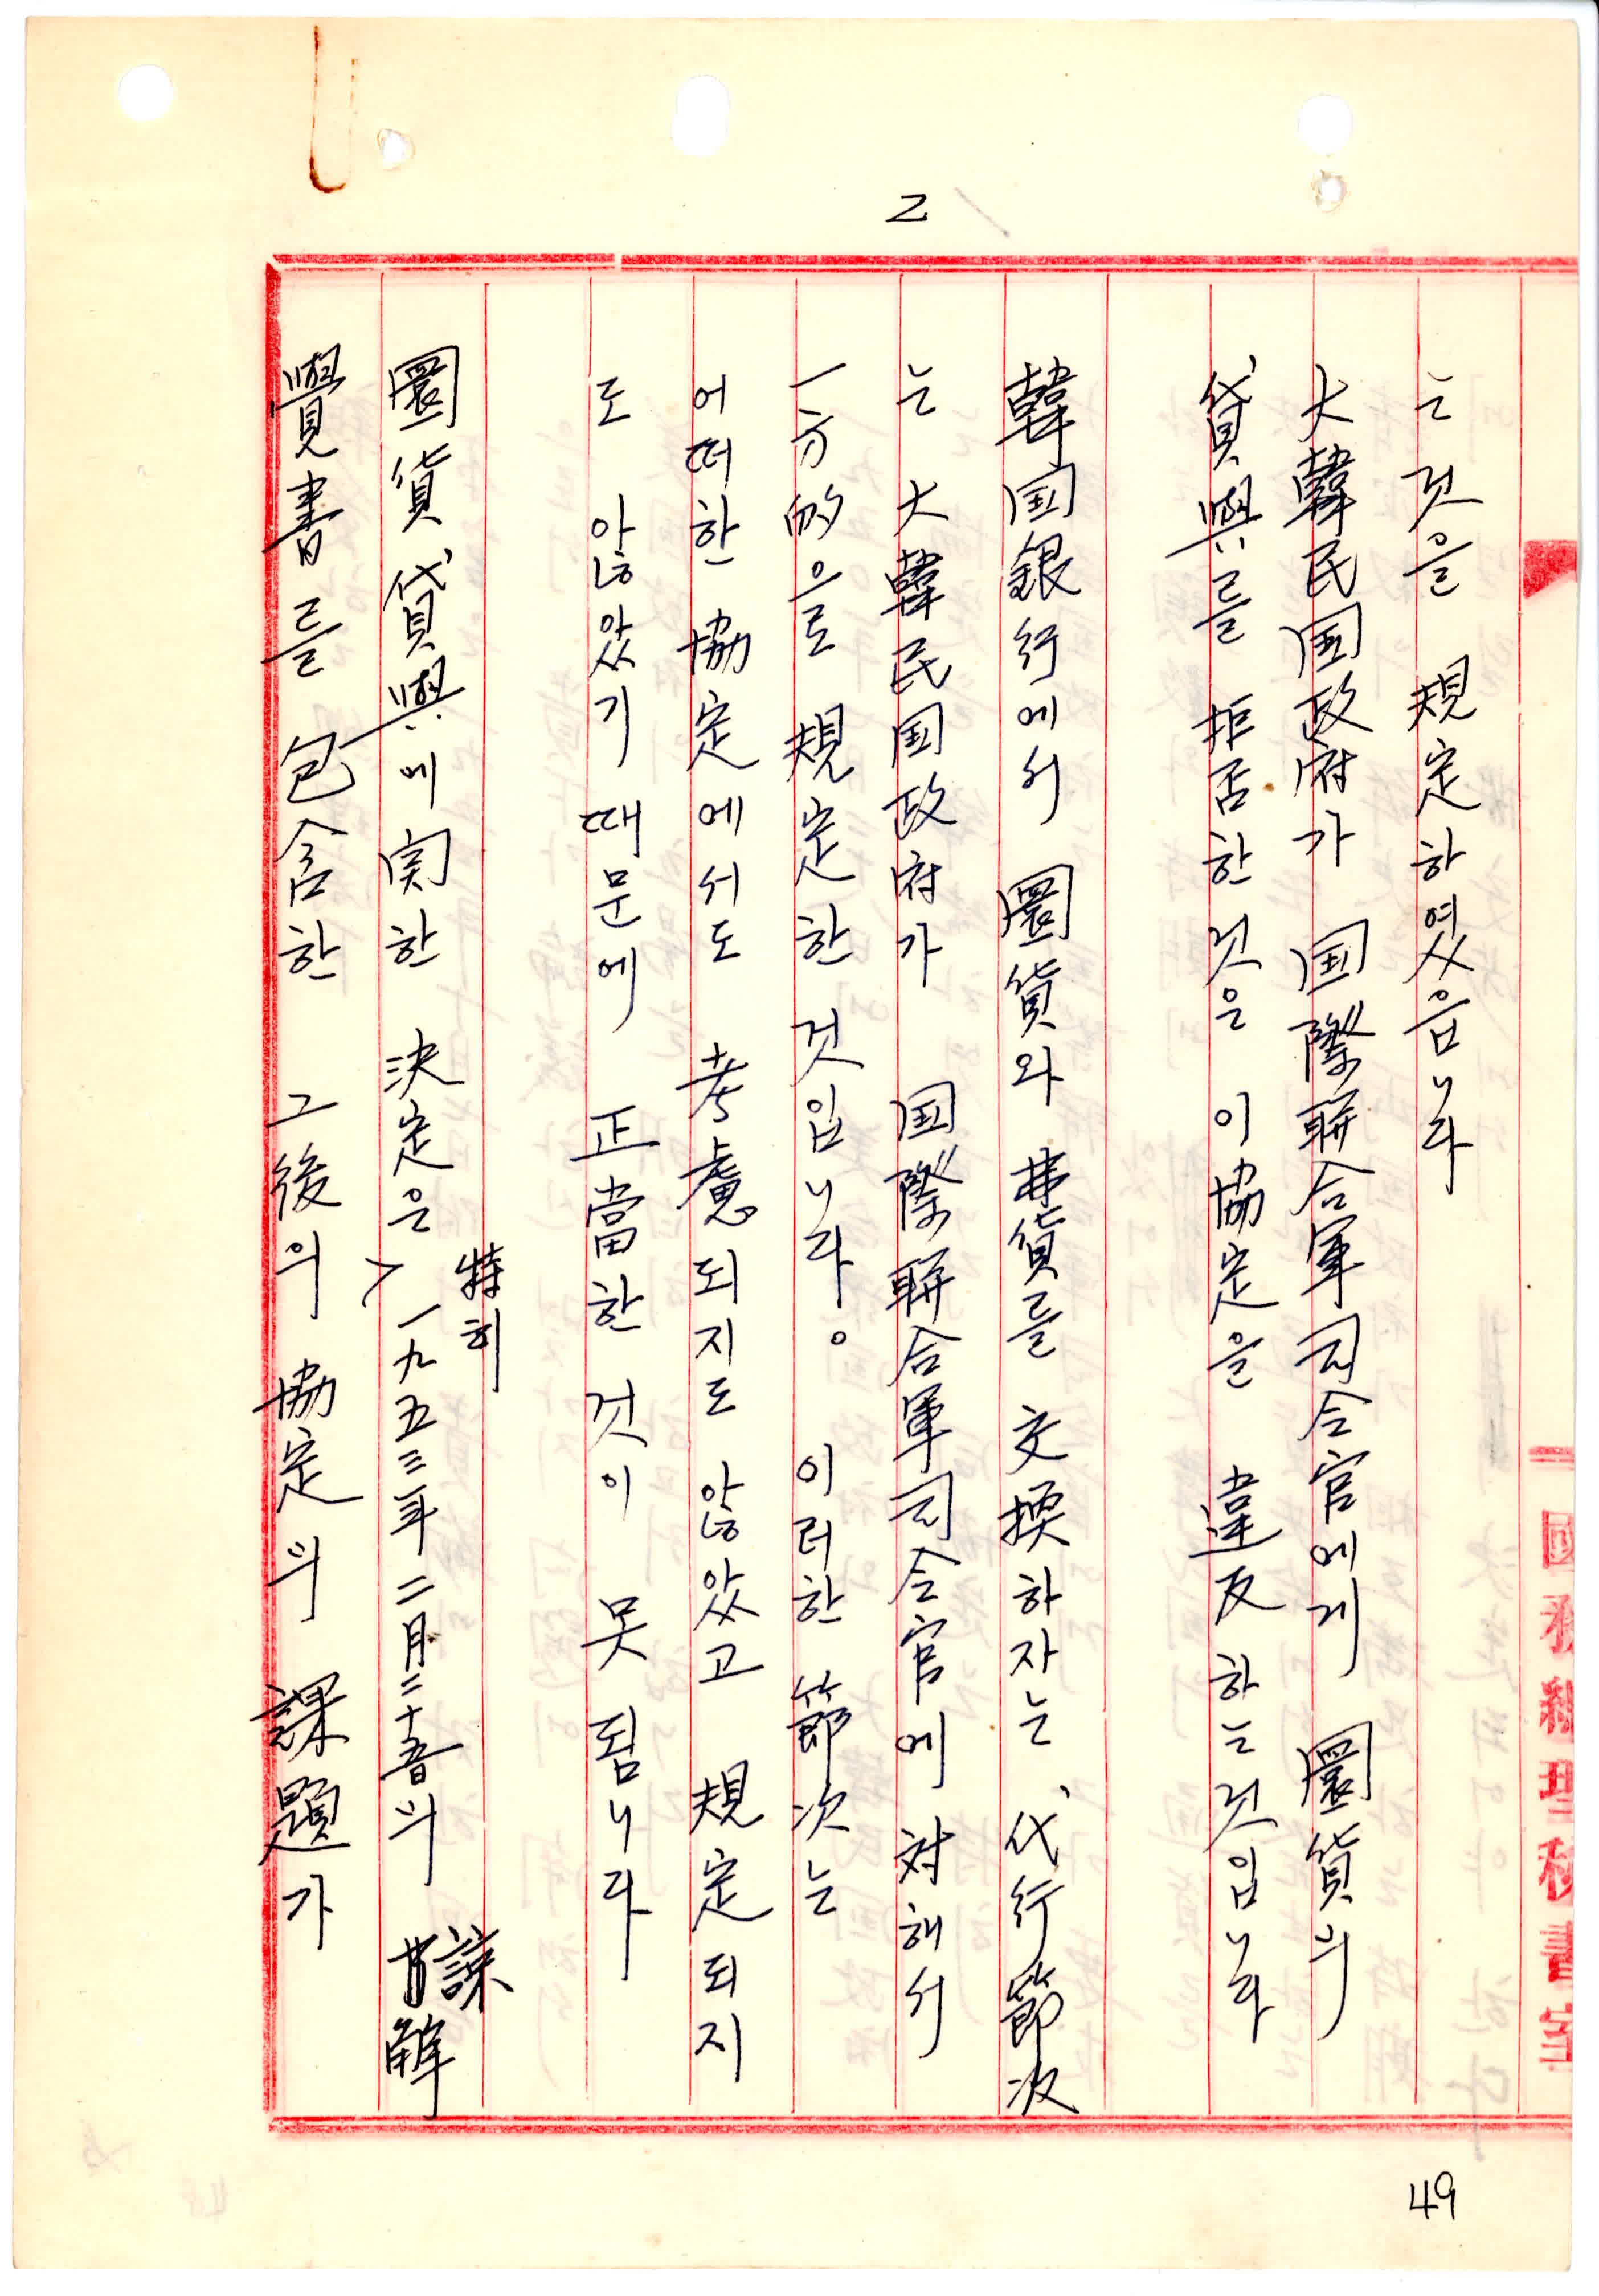 2
는 것을 規定하였읍니다
大韓民国政府가 国際聯合軍司令官에게 圜貨의
貸與를 拒否한 것은 이 協定을 違反하는 것입니다
韓国銀行에서 圜貨와 弗貨를 交換하자는 代行節次
는 大韓民国政府가 国際聯合軍司令官에 対해서
一方的으로 規定한 것입니다。 이러한 節次는
어떠한 協定에서도 考慮되지도 않았고 規定되지
도 않았기 때문에 正當한 것이 못 됩니다
圜貨貸與에 関한 決定은 特히 一九五三年 二月二十五日의 諒解
覺書를 包含한 그 後의 協定의 課題가
國務總理秘書室
49